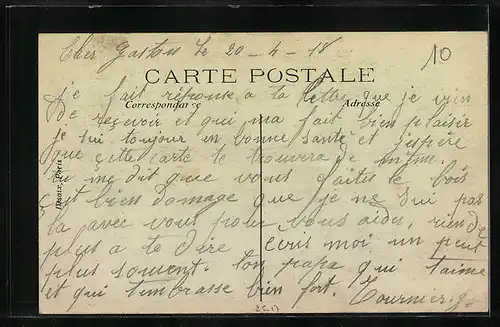 Cher Gaston le 20-4-18
10
CARTE POSTALE
je fait réponse a ta lettre que je vien
Correspondance
Adresse
De reçevoir et qui ma fait bien plaisir
je sui toujour en bonne santé et j'espère
que cette carte te trouvera de meme
tu me dit que vous faites le bois
c'est bien domage que je ne sui pas
la avec vous pour vous aider, rien de
plus a te dire ecris moi un peut
plus souvent. ton papa qui t'aime
et qui t'embrasse bien fort. Tournier g.